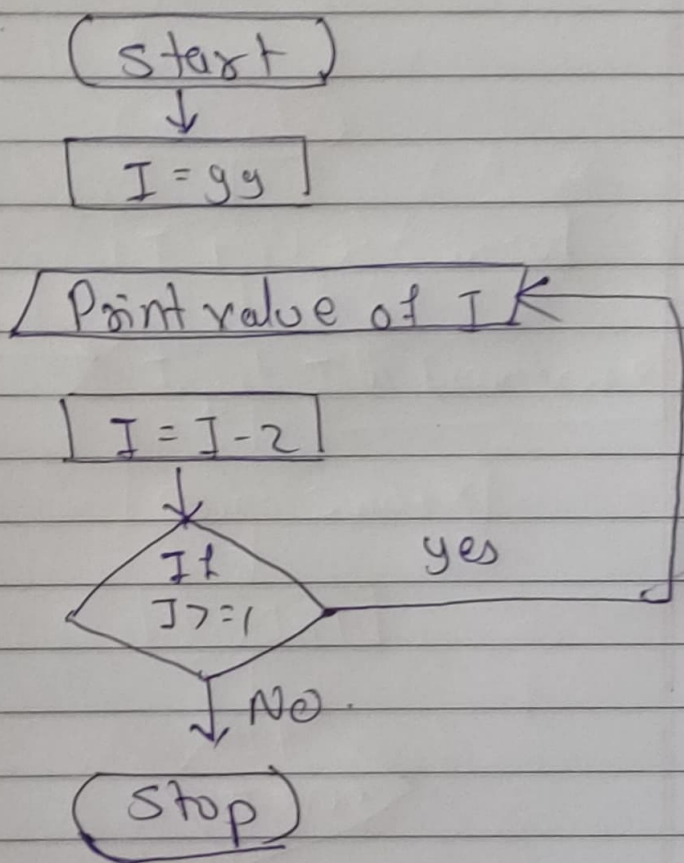 Start
I = 99
Print value of I
I = I - 2
If
I >= 1
yes
No.
Stop